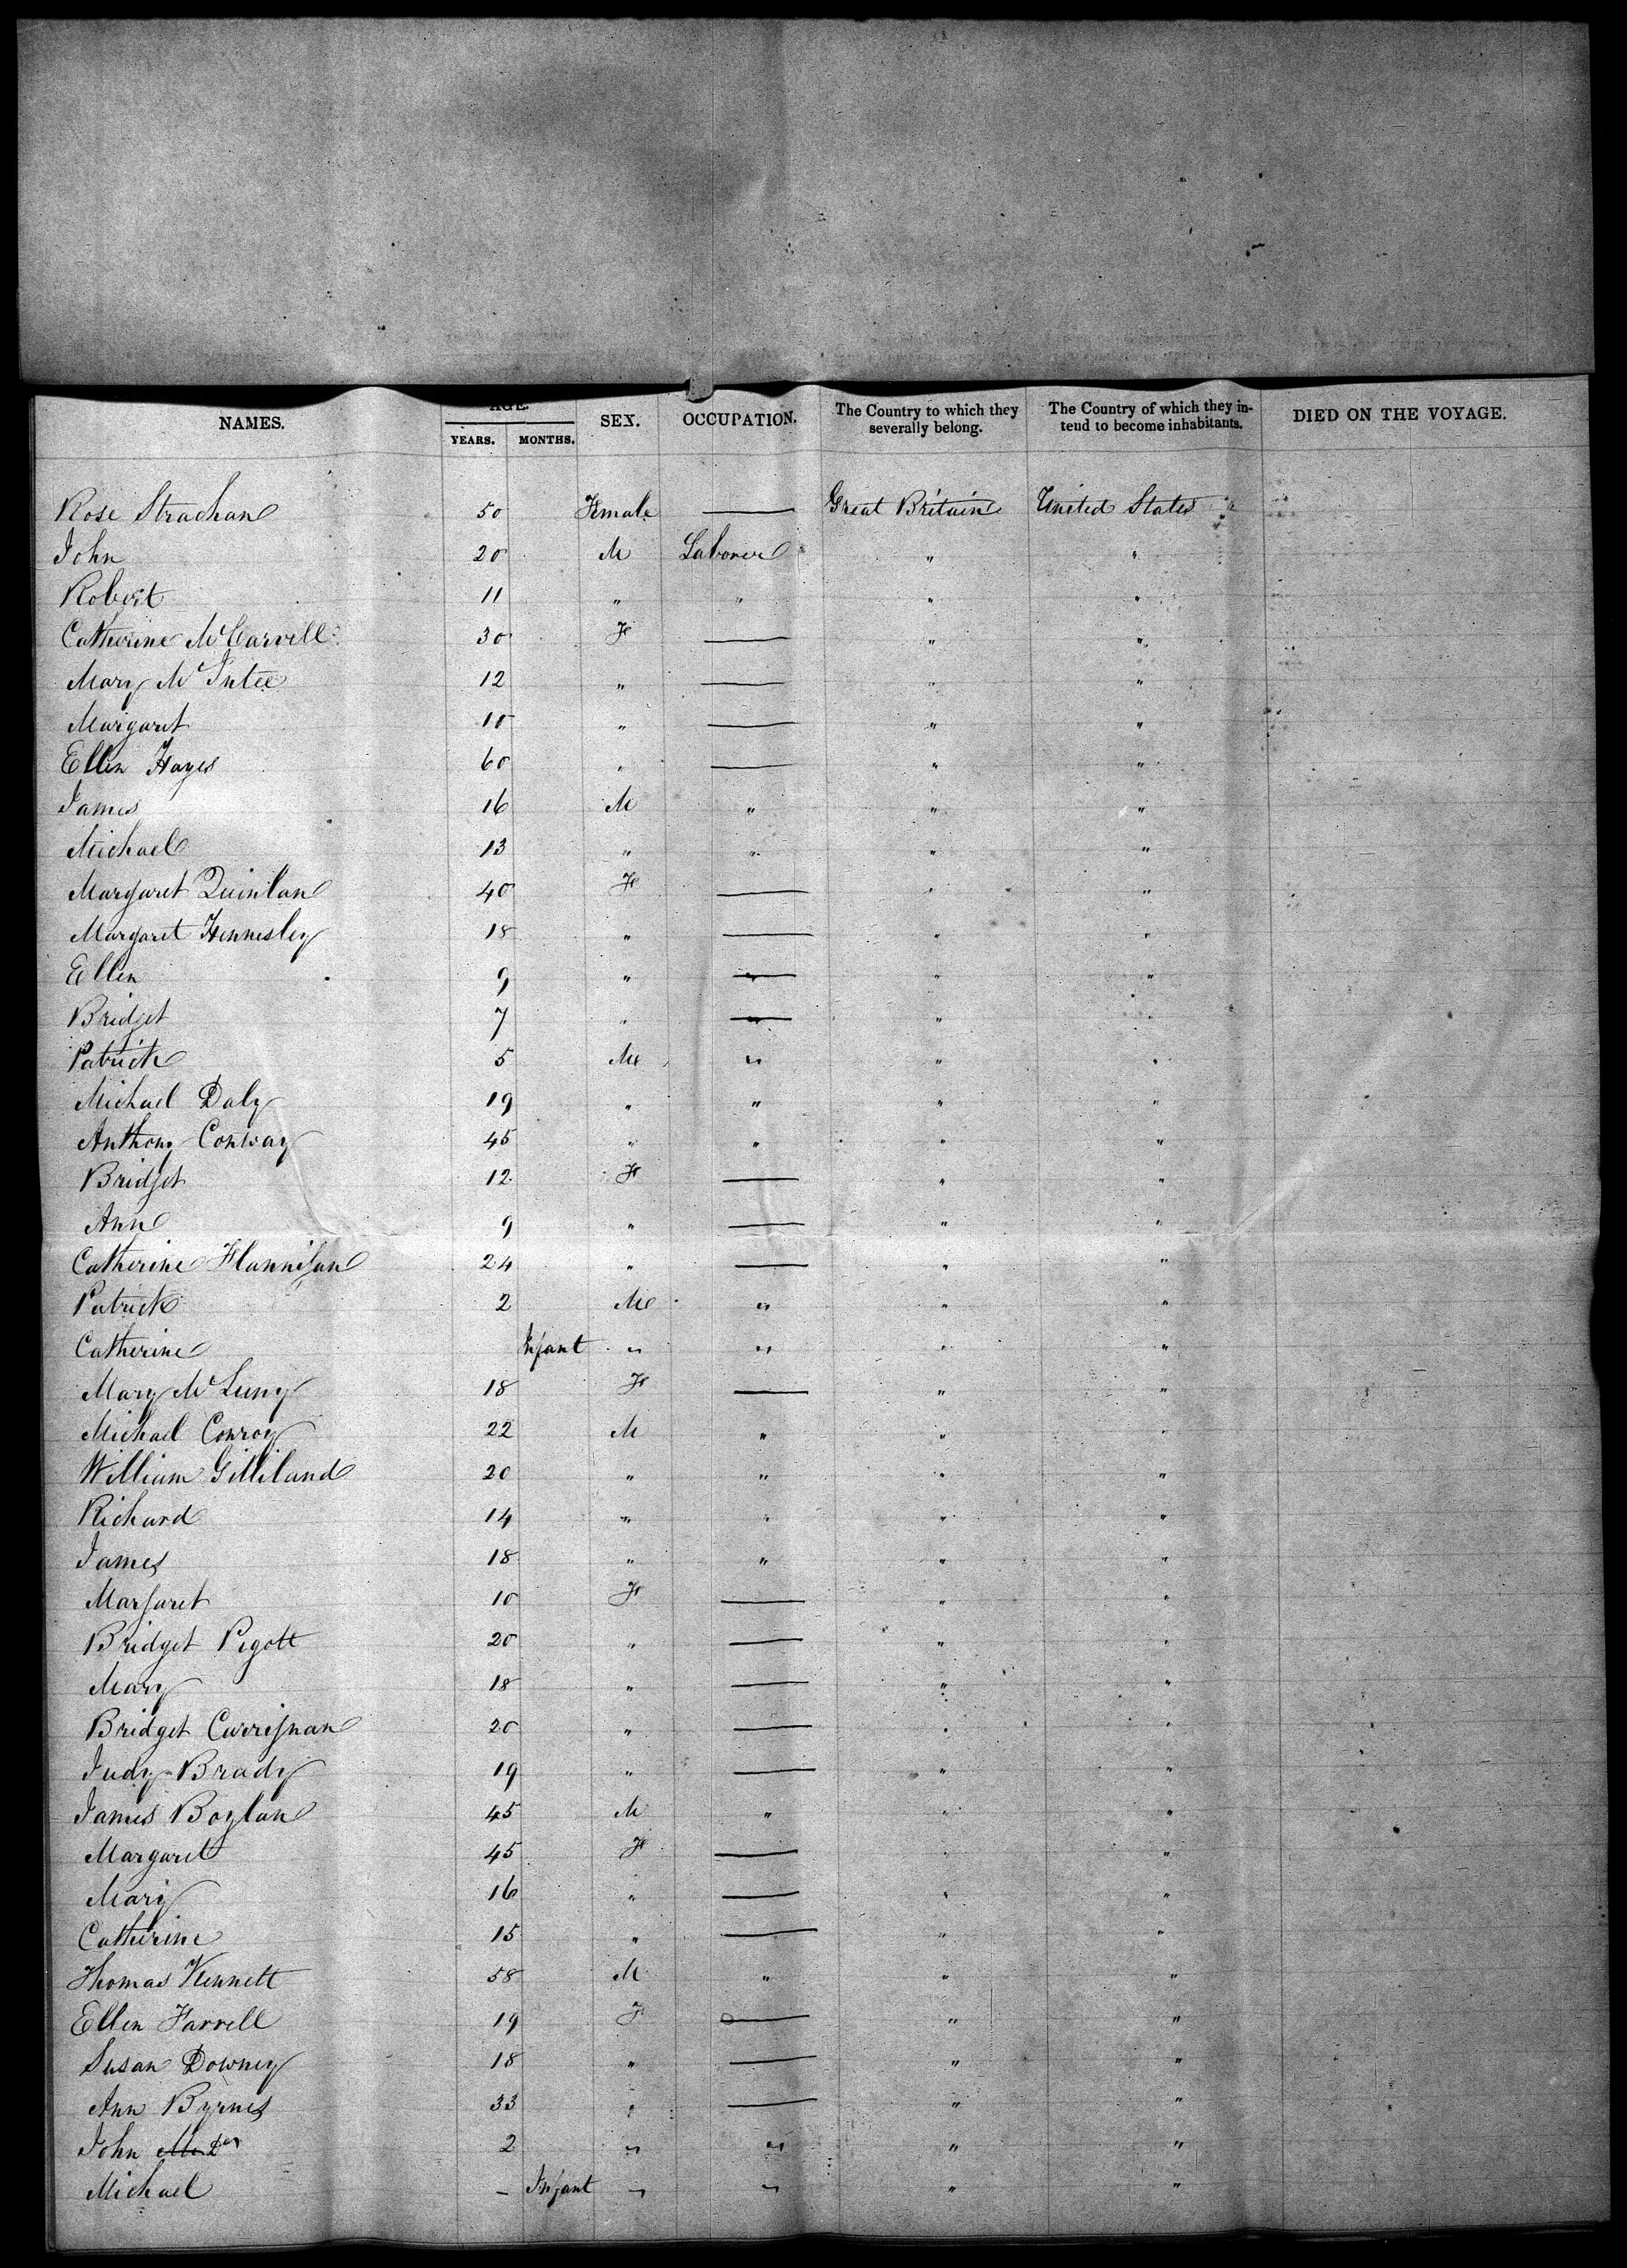 NAMES. AGE. SEX. OCCUPATION. The Country to which they severally belong. The Country of which they intend to become inhabitants. DIED ON THE VOYAGE.
YEARS. MONTHS.
Rose Strachan 50 Female — Great Britain United States
John 20 M Laborer " "
Robert 11 " " " "
Catherine McCarvill 30 F — " "
Mary McIntee 12 " — " "
Margaret 10 " — " "
Ellen Hayes 60 " — " "
James 16 M " " "
Michael 13 " " " "
Margaret Quinlan 40 F — " "
Margaret Hennesley 18 " — " "
Ellen 9 " — " "
Bridget 7 " — " "
Patrick 5 M " " "
Michael Daly 19 " " " "
Anthony Conway 45 " " " "
Bridget 12 F — " "
Ann 9 " — " "
Catherine Flannigan 24 " — " "
Patrick 2 M " " "
Catherine Infant " " " "
Mary 18 F — " "
Michael Conroy 22 M " " "
William Gilliland 20 " " " "
Richard 14 " " " "
James 18 " " " "
Margaret 10 F — " "
Bridget Pigott 20 " — " "
Mary 18 " — " "
Bridget Currignan 20 " — " "
Judy Brady 19 " — " "
James Boylan 45 M " " "
Margaret 45 F — " "
Mary 16 " — " "
Catherine 15 " — " "
Thomas Kennett 58 M " " "
Ellen Farrell 19 F — " "
Susan Downey 18 " — " "
Ann Byrnes 33 " — " "
John 2 " " " "
Michael — Infant " " " "